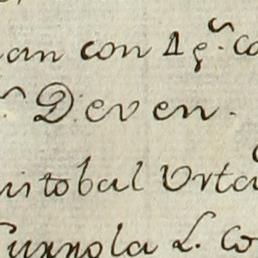 an con 1 q.^s co
D. even.
istobal Urta
urrola L. Co